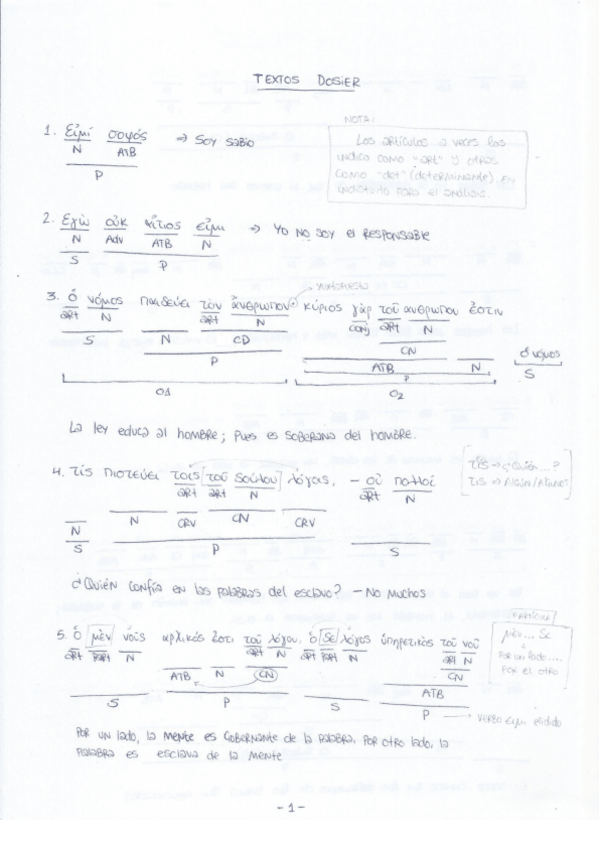 TEXTOS DOSIER
NOTA:
Los artículos a veces los
indico como "art" y otros
como "det" (determinante). Es
indistinto para el análisis.
1. Εἰμί σοφός => Soy sabio
N ATB
P
2. Εγὼ οὐκ αἴτιος εἰμι => Yo no soy el responsable
N Adv ATB N
S P
3. ὁ νόμος παιδεύει τὸν ἄνθρωπον· κύριος γὰρ τοῦ ἀνθρωπου ἐστιν
art N art N conj art N
S N CD CN
P ATB N ὁ νόμος
P S
O1 O2
La ley educa al hombre; pues es soberana del hombre.
4. τίς πιστεύει τοις [τοῦ δούλου] λόγοις, - οὐ πολλοί
art art N art N
N CRV CN CRV
N
S P S
τίς => ¿Quién...?
τις => Algún/Alguno
¿Quién confía en las palabras del esclavo? - No muchos
5. Ὁ μὲν νοῦς αρχικός ἐστι τοῦ λόγου, ὁ δε λόγος ὑπηρετικὸς τοῦ νοῦ
art part N art N art part N art N
ATB N CN CN
ATB
S P S P → verbo εἰμι elidido
μὲν... δε
Por un lado....
Por el otro
Por un lado, la mente es gobernante de la palabra. Por otro lado, la
palabra es esclava de la mente
- 1 -